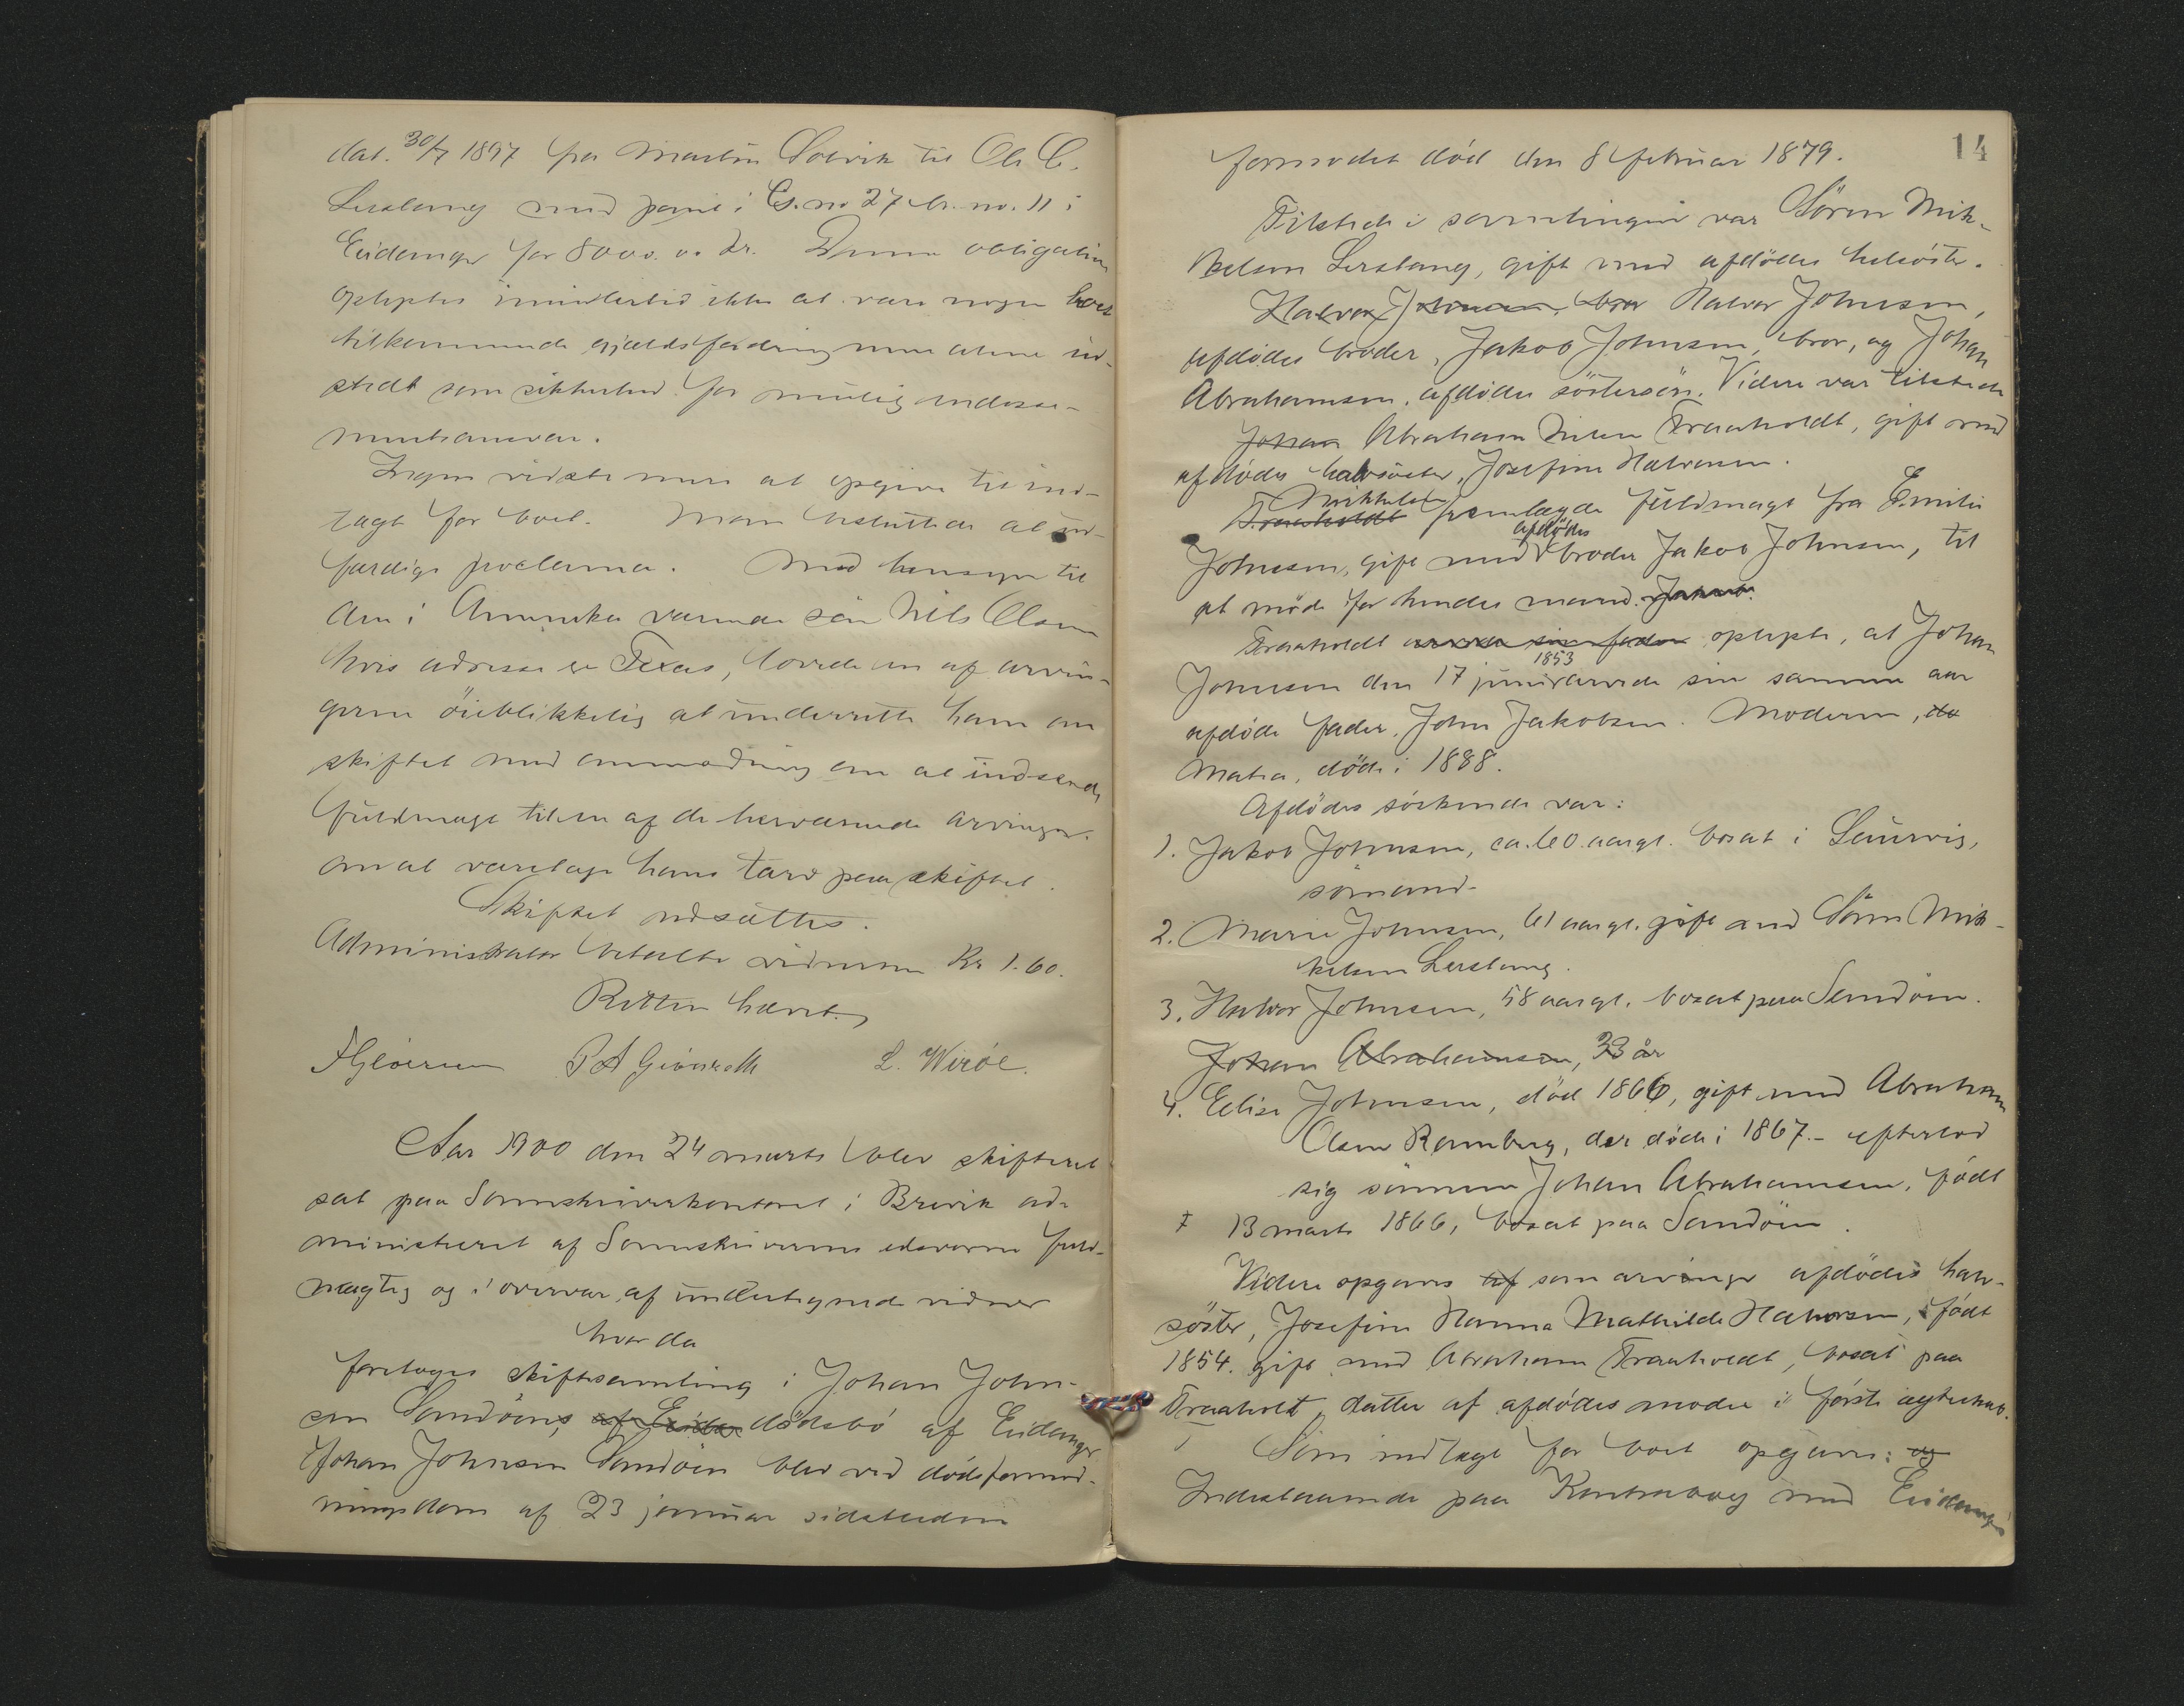 dat. 30/7 1897 fra Martin Solvik til Ole C.
Lerstang med pant i G.no 27 br.no. 11 i
Eidanger for 8000.00 kr. Denne obligation
oplystes imidlertid ikke at være nogen boet
tilkommende gjældsfordring men alene ud-
stedt som sikkerhed for mulig endosse-
mentsansvar.
Ingen vidste mere at opgive til ind-
tægt for boet. Man besluttede at ud-
færdige proclama. Med hensyn til
den i Amerika værende søn Nils Olsen
hvis adresse er Texas, lovede en af arvin-
gerne öieblikkelig at underrette ham om
skiftet med anmodning om at indsende
fuldmagt til en af de herværende arvinger
om at varetage hans tarv paa skiftet.
Skiftet udsattes.
Administrator betalte vidnerne Kr 1.60.
Retten hævet.
L. Wiröe.
Aar 1900 den 24 marts blev skifteret
sat paa Sorenskriverkontoret i Brevik ad-
ministreret af Sorenskriverens edsvorne fuld-
mægtig og i overvær af undertegnede vidner
hvor da
foretoges skiftesamling i Johan John-
sen Sandöens af Eidan dödsbo af Eidanger
Johan Johnsen Sandöen blev ved dödsformod-
ningsdom af 23 januar sidstleden
14
formodet död den 8 februar 1879.
Tilstede i samlingen var Sören Mik-
kelsen Lerstang, gift med afdödes helsöster.
Halvor Johnsen, bror Halvor Johnsen,
afdödes broder, Jakob Johnsen, bror, og Johan
Abrahamsen, afdödes söstersön. Videre var tilstede
Johan Abraham Nilsen Traaholdt, gift med
afdödes halvsöster, Josefine Halvorsen.
Mikkelsen
Traaholdt fremlagde fuldmagt fra Emilie
afdödes
Johnsen, gift med broder Jakob Johnsen, til
at möde for hendes mand.
Traaholdt oplyste, at Johan
1853
Johnsen den 17 juni arvede sin samme aar
afdöde fader, John Jakobsen. Moderen, do
Maria, döde i 1888.
Afdödes söskende var:
1. Jakob Johnsen, ca. 60 aar gl. bosat i Laurvig,
sömand.
2. Marie Johnsen, 61 aar gl. gift med Sören Mik-
kelsen Lerstang.
3. Halvor Johnsen, 58 aar gl. bosat paa Sandöen.
Johan Abrahamsen, 33 år
4. Elise Johnsen, död 1866, gift med Abraham
Olsen Ramberg, der döde i 1867. - efterlod
sig sönnen Johan Abrahamsen, født
13 marts 1866, bosat paa Sandöen.
Videre opgaves af som arvinger afdödes halv-
söster, Josefine Hanna Mathilde Halvorsen, født
1854. gift med Abraham Traaholdt, bosat paa
Traaholt, datter af afdödes moder i første ægteskab.
Som indtægt for boet opgaves: og
Indestaaende paa Kontrabog med Eidangers